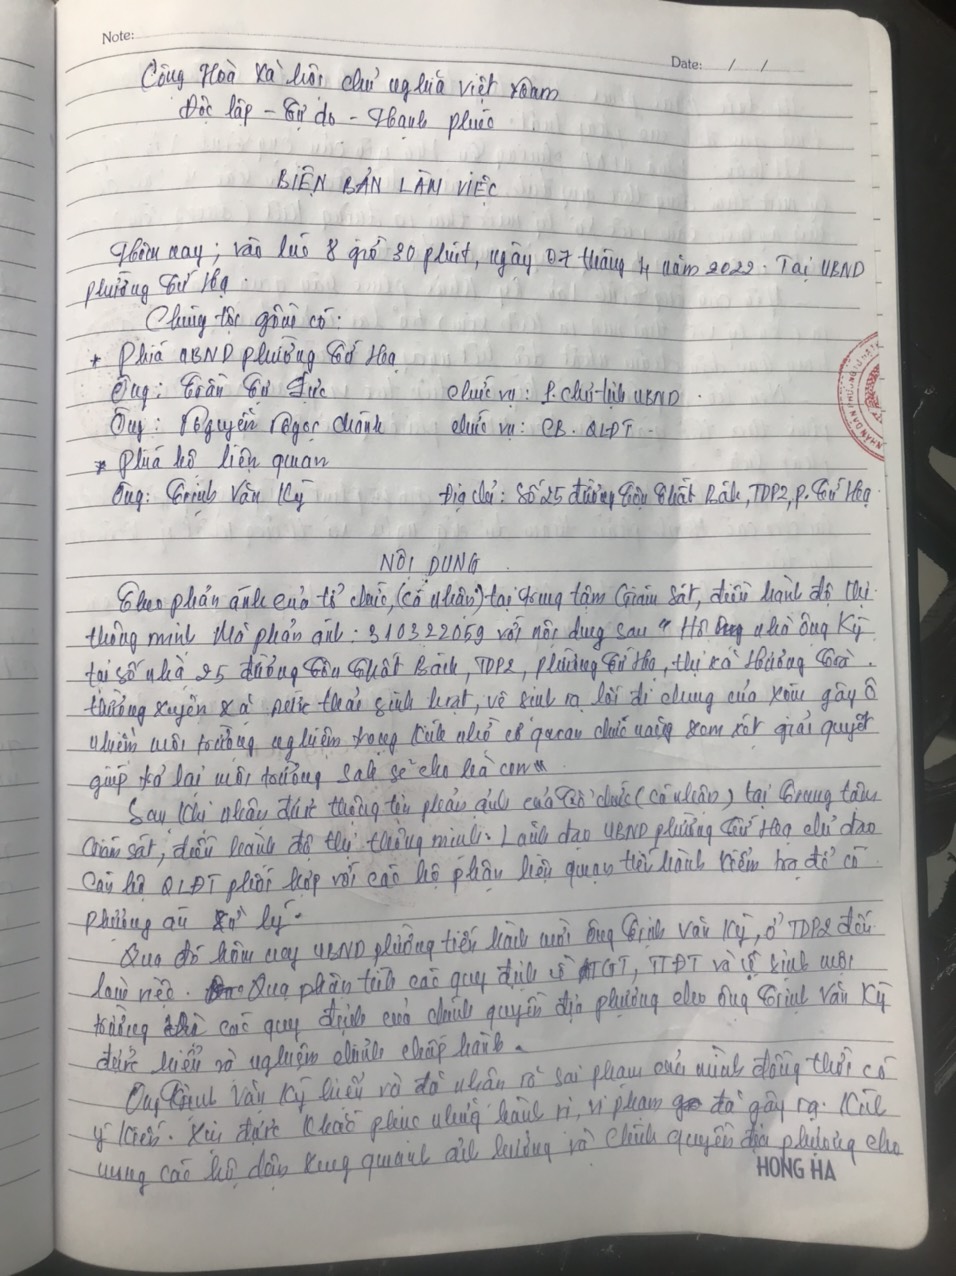 Note:
Date: / /
Cộng Hoà Xã hội chủ nghĩa Việt Nam
Độc lập - Tự do - Hạnh phúc
BIÊN BẢN LÀM VIỆC
Hôm nay; vào lúc 8 giờ 30 phút, ngày 07 tháng 4 năm 2022. Tại UBND
phường Tứ Hạ.
Chúng tôi gồm có:
* Phía UBND phường Tứ Hạ
Ông: Trần Tư Đức chức vụ: P. chủ tịch UBND.
Ông: Nguyễn Ngọc Chánh chức vụ: CB. QLĐT.
* Phía hộ liên quan
Ông: Trịnh Văn Kỳ Địa chỉ: Số 25 đường Tôn Thất Bách, TDP2, P. Tứ Hạ.
NHÂN DÂN PHƯỜNG TỨ HẠ
NỘI DUNG
Theo phản ánh của tổ chức, (cá nhân) tại trung tâm Giám sát, điều hành đô thị
thông minh Mã phản ánh: 310322059 với nội dung sau "Hộ nhà ông Kỳ
tại số nhà 25 đường Tôn Thất Bách, TDP2, phường Tứ Hạ, thị xã Hương Trà.
thường xuyên xả nước thải sinh hoạt, vệ sinh ra lối đi chung của xóm gây ô
nhiễm môi trường nghiêm trọng Kính nhờ cơ quan chức năng xem xét giải quyết
giúp trả lại môi trường sạch sẽ cho bà con"
Sau khi nhận được thông tin phản ánh của Tổ chức (cá nhân) tại Trung tâm
Giám sát, điều hành đô thị thông minh. Lãnh đạo UBND phường Tứ Hạ chỉ đạo
Cán bộ QLĐT phối hợp với các bộ phận liên quan tiến hành kiểm tra để có
phương án xử lý.
Qua đó hôm nay UBND phường tiến hành mời ông Trịnh Văn Kỳ, ở TDP2 đến
làm việc. Qua phân tích các quy định về ATGT, TTĐT và vệ sinh môi
trường các quy định của chính quyền địa phương cho ông Trịnh Văn Kỳ
được hiểu rõ nghiêm chỉnh chấp hành.
Ông Trịnh Văn Kỳ hiểu và đã nhận rõ sai phạm của mình đồng thời có
ý kiến. Xin được khắc phục những hành vi, vi phạm đã gây ra. Kính
mong các hộ dân xung quanh ảnh hưởng và Chính quyền địa phương cho
HONG HA